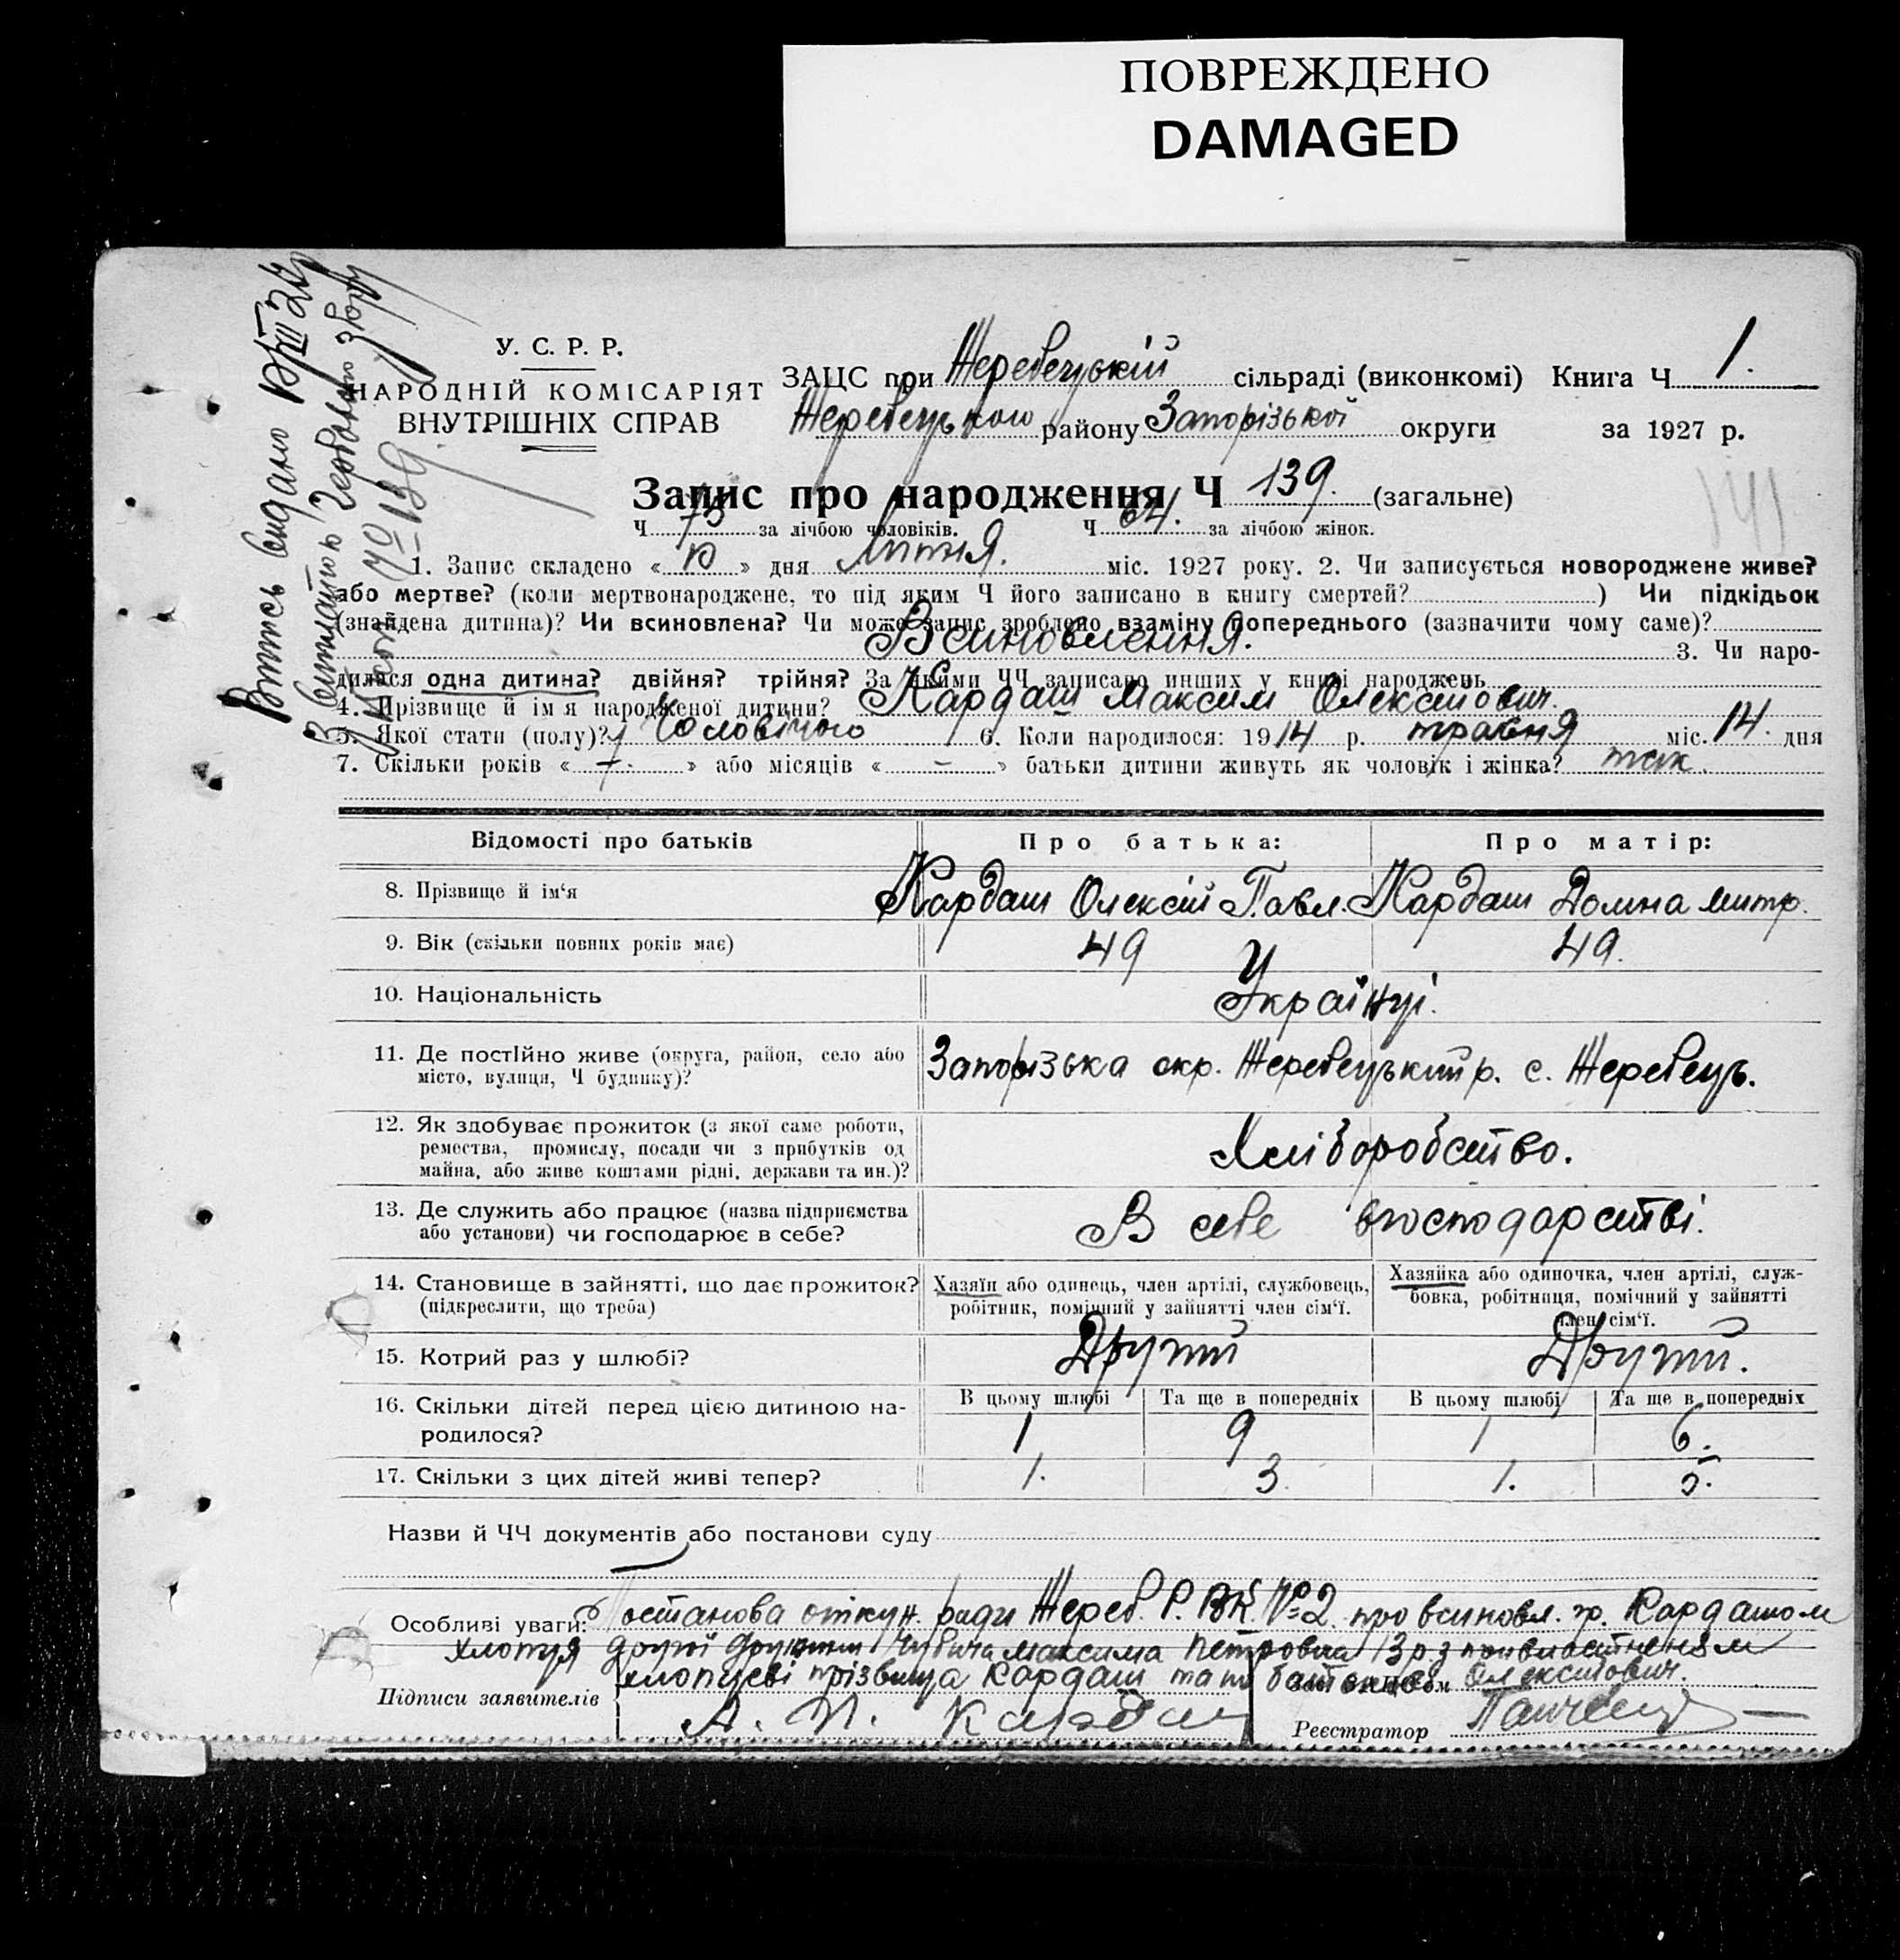 ПОВРЕЖДЕНО
DAMAGED
У. С. Р. Р.
НАРОДНІЙ КОМІСАРІЯТ
ВНУТРІШНІХ СПРАВ
Витись видано
з виплатою гербового збору
№ 139
ЗАЦС при Жеребецькій сільраді (виконкомі) Книга Ч 1.
Жеребецького району Запорізької округи за 1927 р.
Запис про народження Ч 139. (загальне)
Ч 75 за лічбою чоловіків. Ч 64. за лічбою жінок.
1. Запис складено « » дня Липня. міс. 1927 року. 2. Чи записується новороджене живе?
або мертве? (коли мертвонароджене, то під яким Ч його записано в книгу смертей? ) Чи підкідьок
(знайдена дитина)? Чи всиновлена? Чи може запис зроблено взаміну попереднього (зазначити чому саме)?
Всиновлення. 3. Чи наро-
дилася одна дитина? двійня? трійня? За якими ЧЧ записано инших у книзі народжень
4. Прізвище й ім'я народженої дитини? Кардаш Максим Олексійович.
5. Якої стати (полу)? Чоловічого 6. Коли народилося: 1914 р. травня міс. 14. дня
7. Скільки років « – » або місяців « – » батьки дитини живуть як чоловік і жінка? так.
Відомості про батьків Про батька: Про матір:
8. Прізвище й ім'я Кардаш Олексій Павл. Кардаш Домна митр.
9. Вік (скільки повних років має) 49 49.
10. Національність Українці.
11. Де постійно живе (округа, район, село або Запорізька окр. Жеребецький р. с. Жеребець.
місто, вулиця, Ч будинку)?
12. Як здобуває прожиток (з якої саме роботи,
ремества, промислу, посади чи з прибутків од Хліборобство.
майна, або живе коштами рідні, держави та ин.)?
13. Де служить або працює (назва підприємства В себе вгосподарстві.
або установи) чи господарює в себе?
14. Становище в зайнятті, що дає прожиток? Хазяїн або одинець, член артілі, службовець, Хазяйка або одиночка, член артілі, служ-
(підкреслити, що треба) робітник, помічний у зайнятті член сім'ї. бовка, робітниця, помічний у зайнятті
член сім'ї.
15. Котрий раз у шлюбі? Другий Другий.
16. Скільки дітей перед цією дитиною на- В цьому шлюбі Та ще в попередніх В цьому шлюбі Та ще в попередніх
родилося? 1 9 1 6.
17. Скільки з цих дітей живі тепер? 1. 3. 1. 5.
Назви й ЧЧ документів або постанови суду
Особливі уваги: Постанова опікун. ради Жереб. Р.ВК. №2 про всиновл. гр. Кардашом
хлопця другої дружини Максима Петровича 13 р. з привласненням
хлопцеві прізвища Кардаш та по батькові Олексійович.
Підписи заявителів А. П. Кардаш Зав. ЗАЦС'ом
Реєстратор